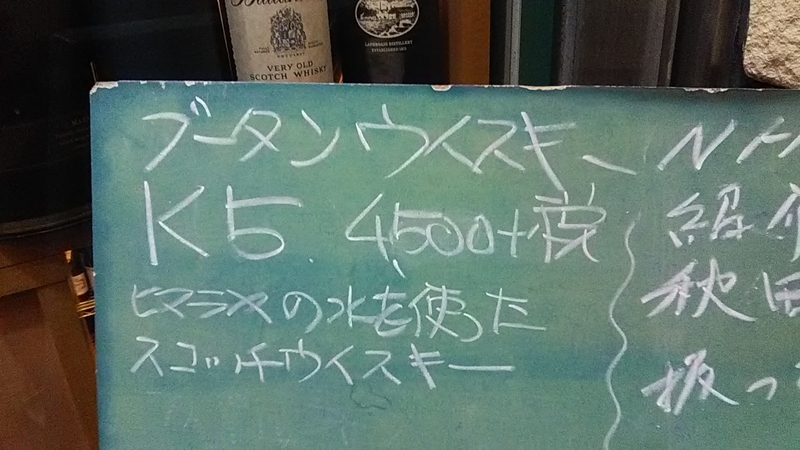 VERY OLD
SCOTCH WHISKY
LAPHROAIG DISTILLERY
ブータンウイスキー
K5 4500+税
ヒマラヤの水を使った
スコッチウイスキー
紹
秋田
扱っ